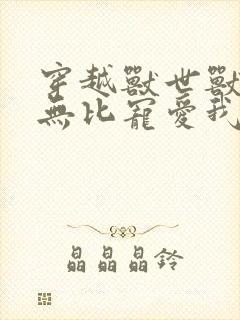 穿越獸世獸
無比寵愛我
晶晶晶鈴